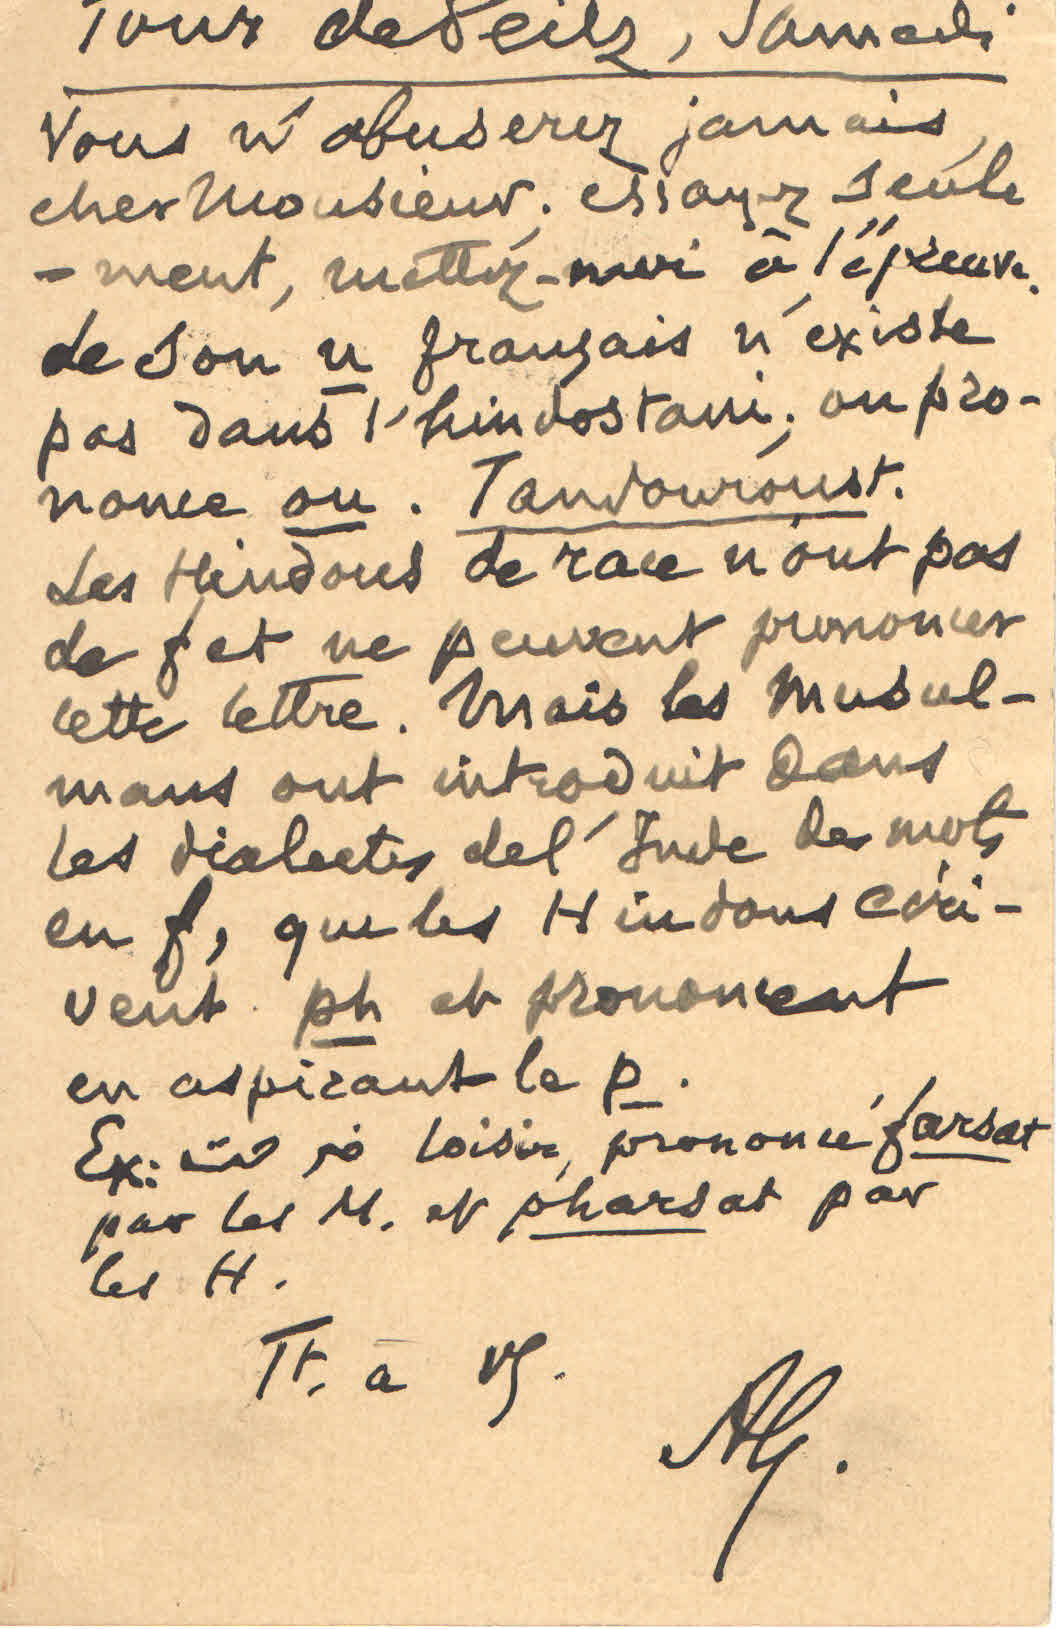 Tour de Peilz, Samedi
Vous n'abuserez jamais,
cher Monsieur. essayez seule
-ment, mettez-moi à l'épreuve.
le son u français n'existe
pas dans l'hindostani; on pro-
nonce ou. Tandouroust.
Les Hindous de race n'ont pas
de f et ne peuvent prononcer
cette lettre. Mais les Musul-
mans ont introduit dans
les dialectes de l'Inde des mots
en f, que les Hindous écri-
vent ph et prononcent
en aspirant le p.
Ex: loisir, prononcé farsat
par les M. et pharsat par
les H.
Tt. à vs.